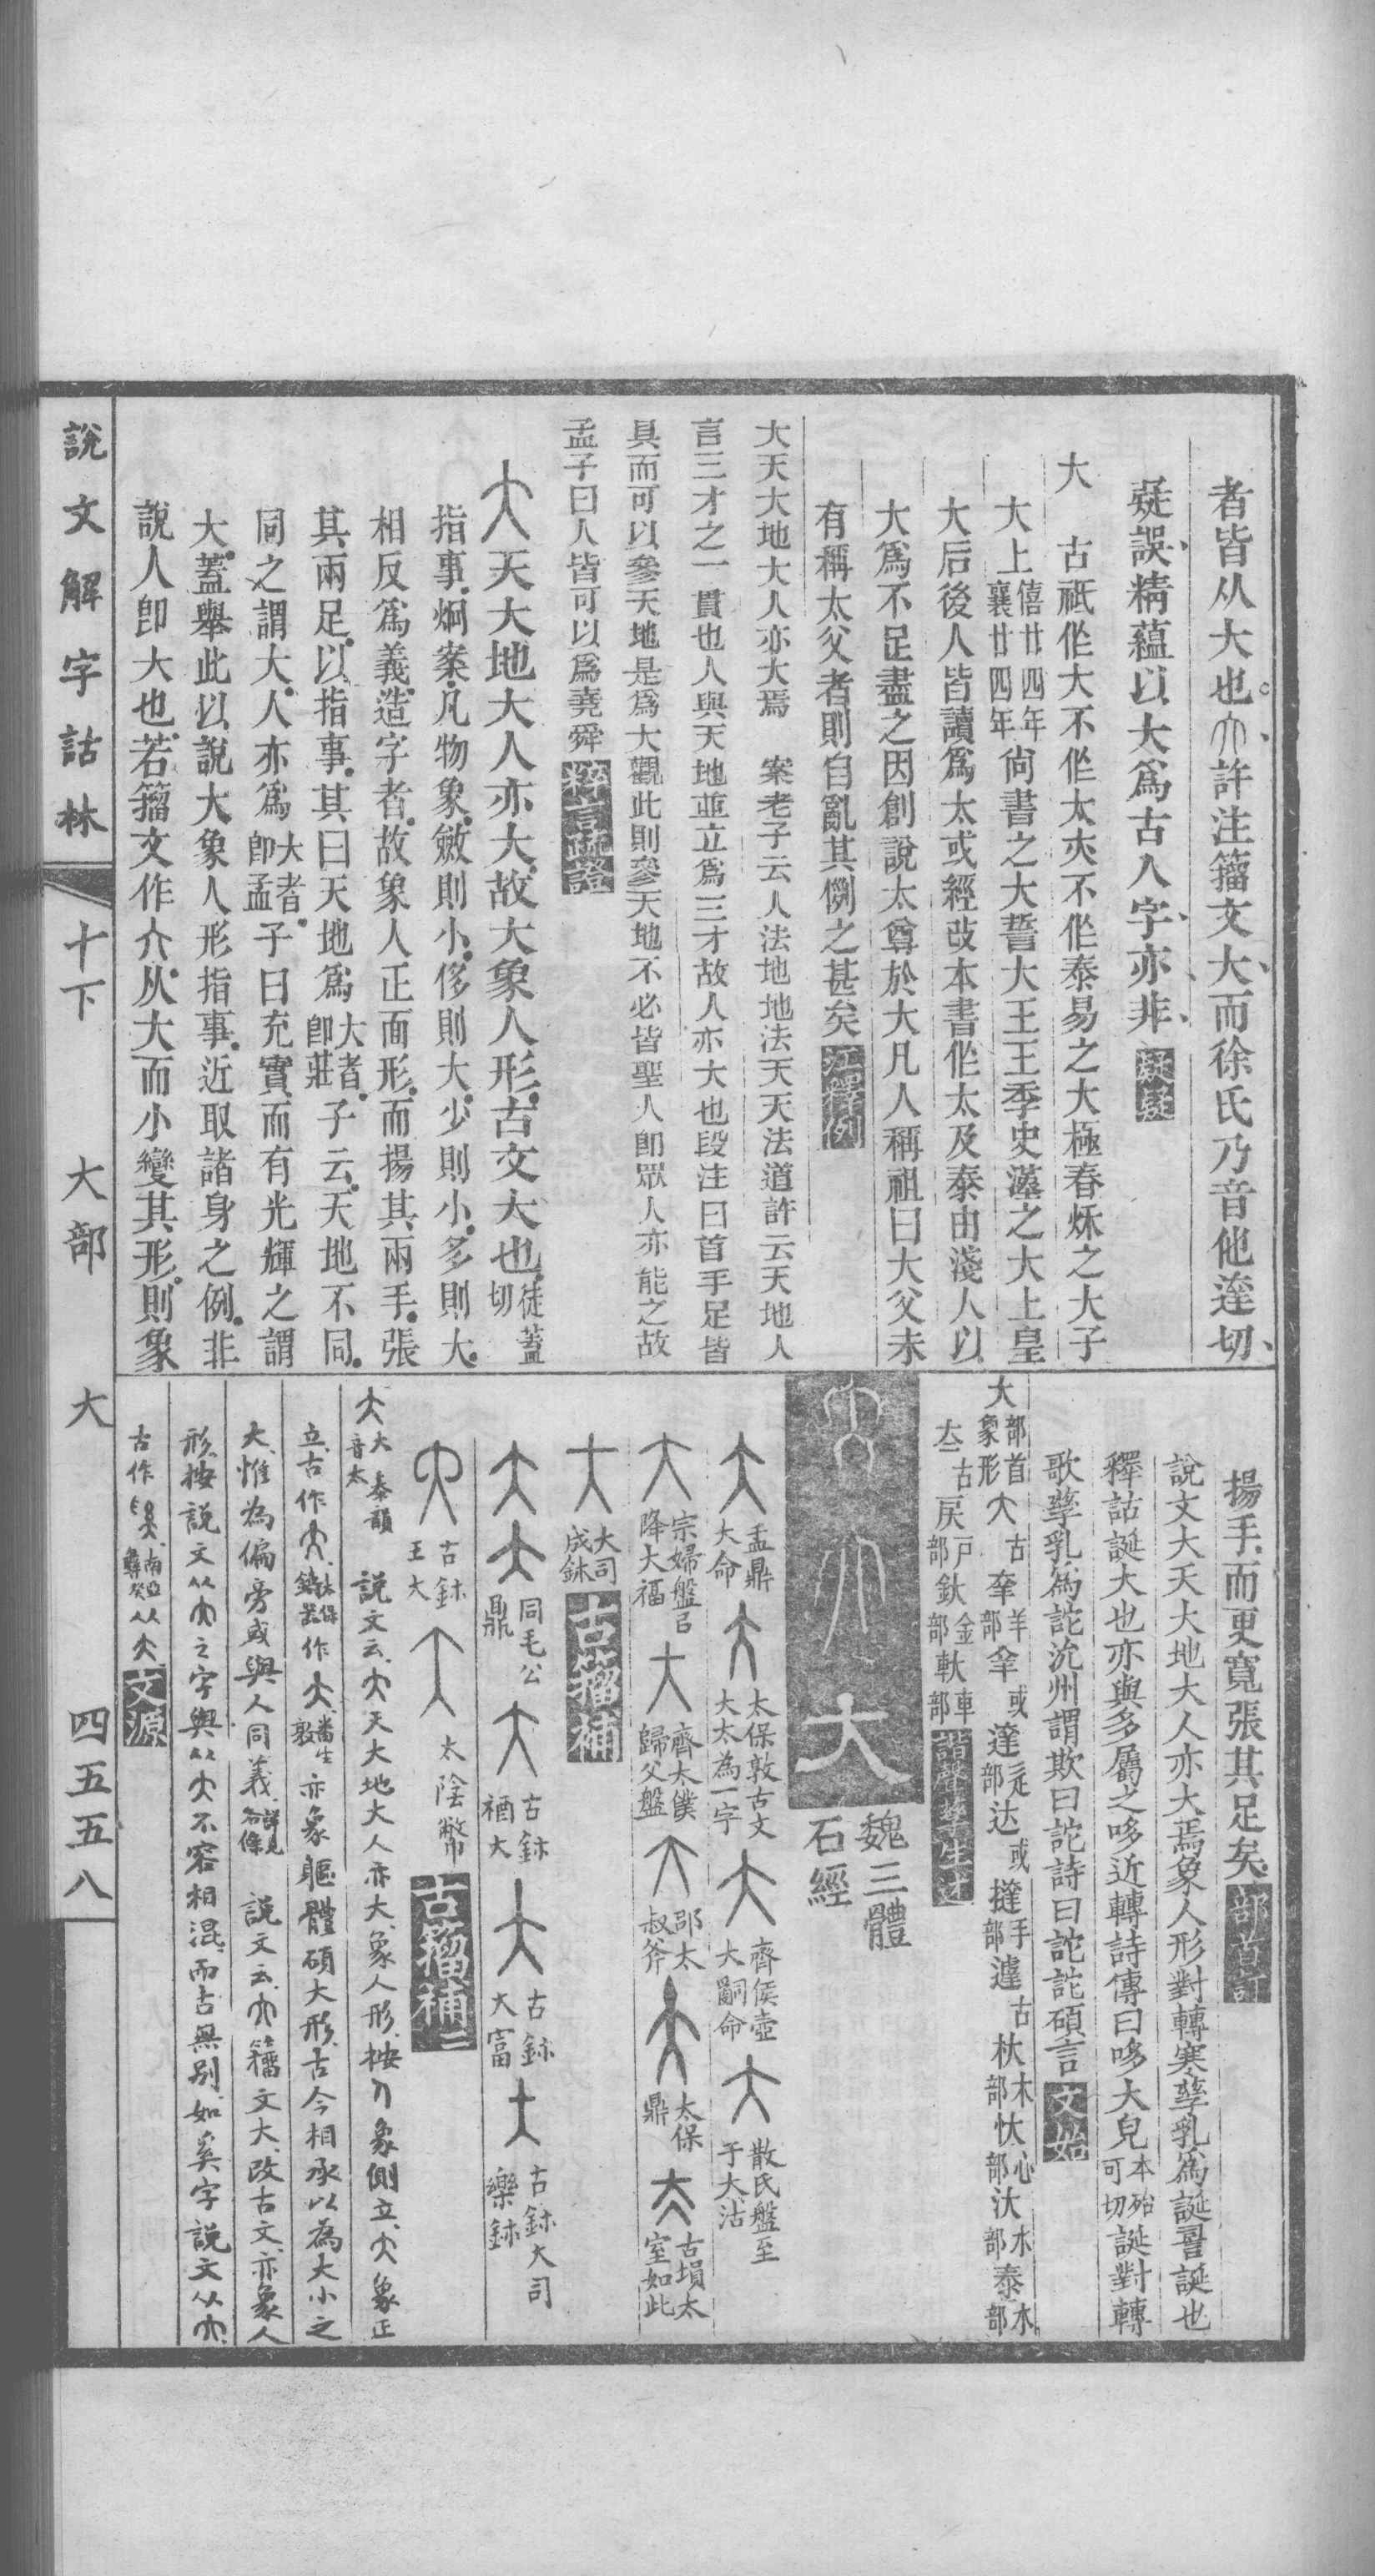 者皆从大也。𠘲許注籀文大而徐氏乃音他達切
疑誤精蘊以大爲古人字亦非 疑疑
大 古祇作大不作太亦不作泰易之大極春秋之大子
大上僖廿四年襄廿四年尙書之大誓大王王季史漢之大上皇
大后後人皆讀爲太或經改本書作太及泰由淺人以
大爲不足盡之因創說太尊於大凡人稱祖曰大父未
有稱太父者則自亂其例之甚矣 江釋例
大天大地大人亦大焉 案老子云人法地地法天天法道許云天地人
言三才之一貫也人與天地並立爲三才故人亦大也段注曰首手足皆
具而可以參天地是爲大觀此則參天地不必皆聖人卽眾人亦能之故
孟子曰人皆可以爲堯舜
大天大地大人亦大故大象人形古文大也徒蓋切
指事炯案凡物象斂則小侈則大少則小多則大
相反爲義造字者故象人正面形而揚其兩手張
其兩足以指事其曰天地爲大者卽莊子云天地不同
同之謂大人亦爲大者卽孟子曰充實而有光輝之謂
大蓋舉此以說大象人形指事近取諸身之例非
說人卽大也若籀文作𠘲从大而小變其形則象
揚手而更寬張其足矣 部首訂
說文大天大地大人亦大焉象人形對轉寒孳乳爲誕誕也
釋詁誕大也亦與多屬之哆近轉詩傳曰哆大皃本殆可切誕對轉
歌孳乳爲詑沇州謂欺曰詑詩曰詑詑碩言 文始
大部首象形 大古 羍羊部 羍或 達辵部 达或 撻手部 古 杕木部 忕心部 汏水部 泰水部
古 戾戶部 釱金部 軑車部 諧聲孳生述
魏三體石經
盂鼎大命 太保敦古文大太為一字 齊侯壺大嗣命 散氏盤至于大沽
宗婦盤降大福 齊太僕歸父盤 郘太叔斧 太保鼎 古塤太室如此
大司成鉥 古籀補
同毛公鼎 古鉥大 古鉥大富 古鉥大司樂鉥
古鉥王大 太陰幣 古籀補二
大 大音太 泰韻 說文云大天大地大人亦大象人形按人象側立大象正
立古作 太保器 作 番生敦 亦象軀體碩大形古今相承以為大小之
大惟為偏旁或與人同義 詳見各條 說文云𠘲籀文大改古文亦象人
形按說文从𠘲之字與从大不容相混而古無別如奚字說文从𠘲
古作 从大 文源
說文解字詁林 十下 大部 大 四五五八